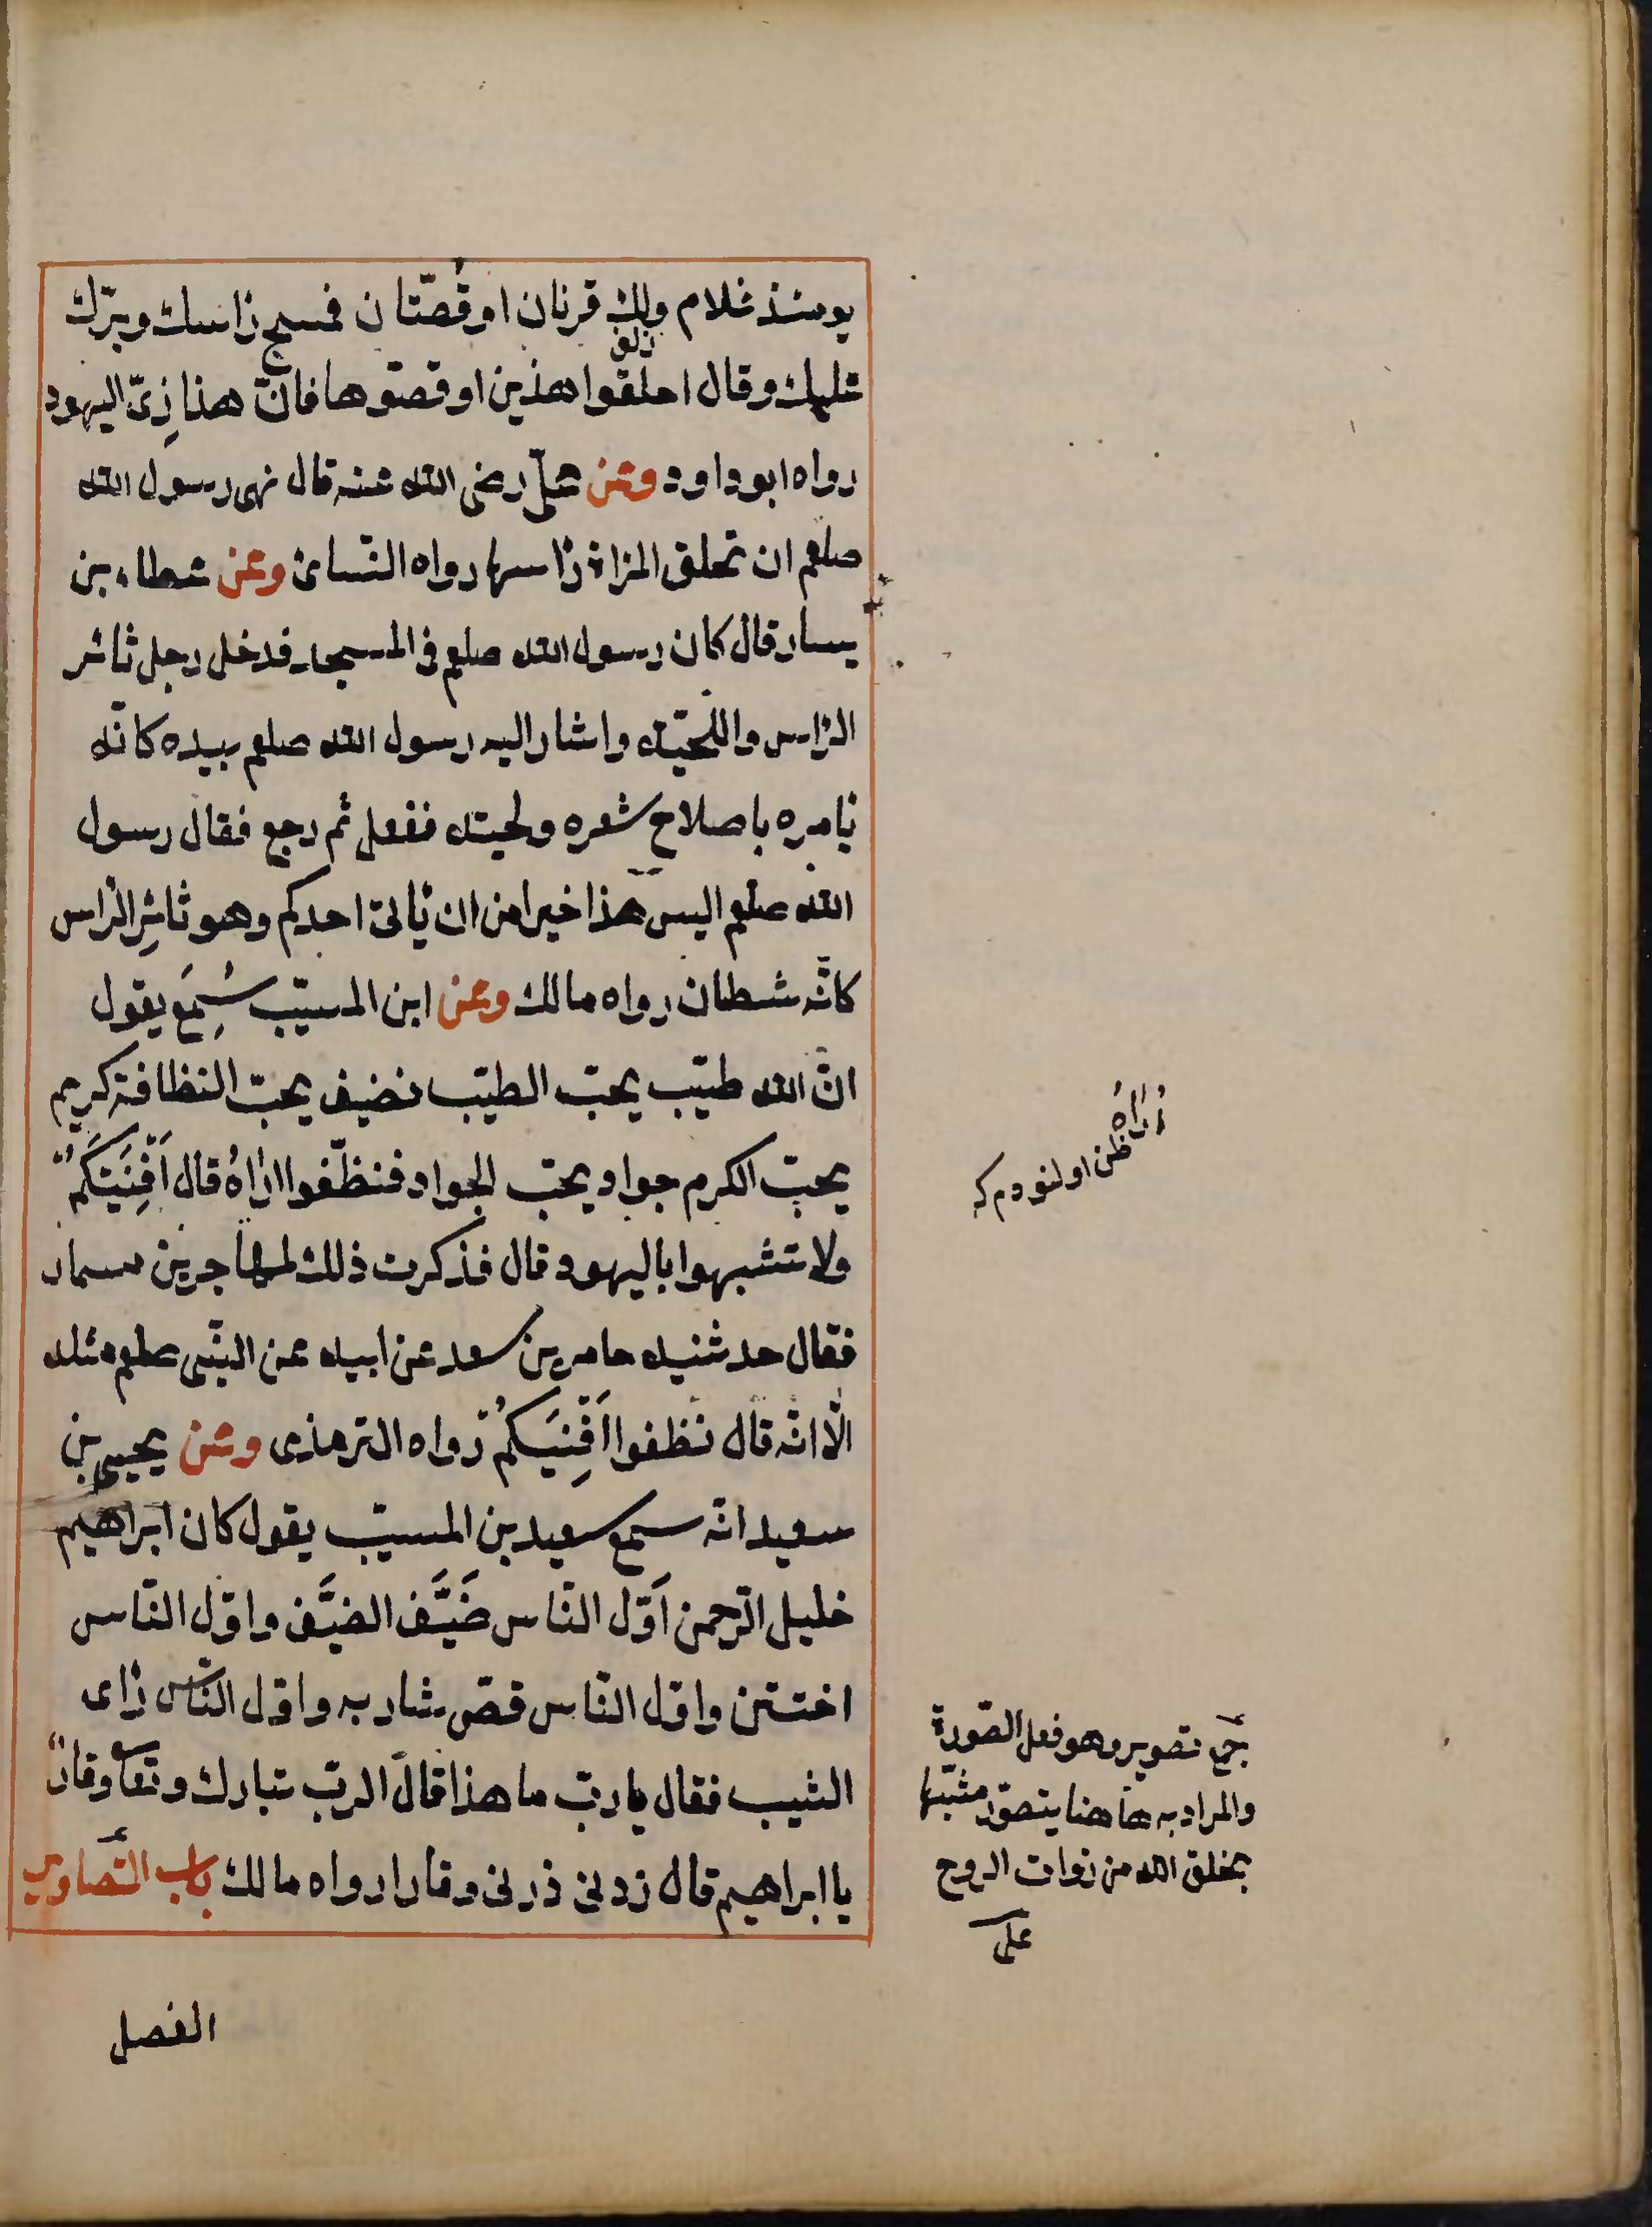 يومئذ غلام ولك قرنان او قُصّتان فمسح راسك وبرّك
عليك وقال احلقوا هذين او قصّوهما فانّ هذا زِىّ اليهود
رواه ابو داود وعن علىّ رضى الله عنه قال نهى رسول الله
صلعم ان تحلق المراة راسها رواه النّسائ وعن عطاء بن
يسار قال كان رسول الله صلعم فى المسجد فدخل رجل ثائر
الراس واللّحيّة واشار اليه رسول الله صلعم بيده كانّه
يامره باصلاح شعره ولحيته ففعل ثم رجع فقال رسول
الله صلعم اليس هذا خيرا من ان ياتى احدكم وهو ثائِر الراس
كانّه شطان رواه مالك وعن ابن المسيّب سُمِعَ يقول
انّ الله طيّب يحبّ الطيّب نضيف يحبّ النظافة كريم
يحبّ الكرم جواد يحبّ الجواد فنظّفوا اراهُ قال اَفْنِيَتَكُمْ
ولا تشبهوا باليهود قال فذكرت ذلك لمهاجر بن مسمار
فقال حدثنيه عامر بن سعد عن ابيه عن النّبى صلعم مثله
الّا انّه قال نظفوا اَفْنِيَتكُمْ رواه الترمذى وعن يحيى بن
سعيد انّه سمع سعيد بن المسيّب يقول كان ابراهيم
خليل الرّحمن اَوّل النّاس ضَيَّفَ الضيَّف واوّل النّاس
اختتن واوّل النّاس قصّ شاربه واوّل النّاس راى
الشيب فقال يا ربّ ما هذا قال الربّ تبارك وتعا وقارٌ
يا ابراهيم قال زدنى ذرنى وقارا رواه مالك باب التّصاوير
الفصل
اُرَاهُ
ظن اولنودم كه
جمع تصوير وهو فعل الصّورة
والمراد به هاهنا يتصوّر مشبّها
بخلق الله من ذوات الروح
على